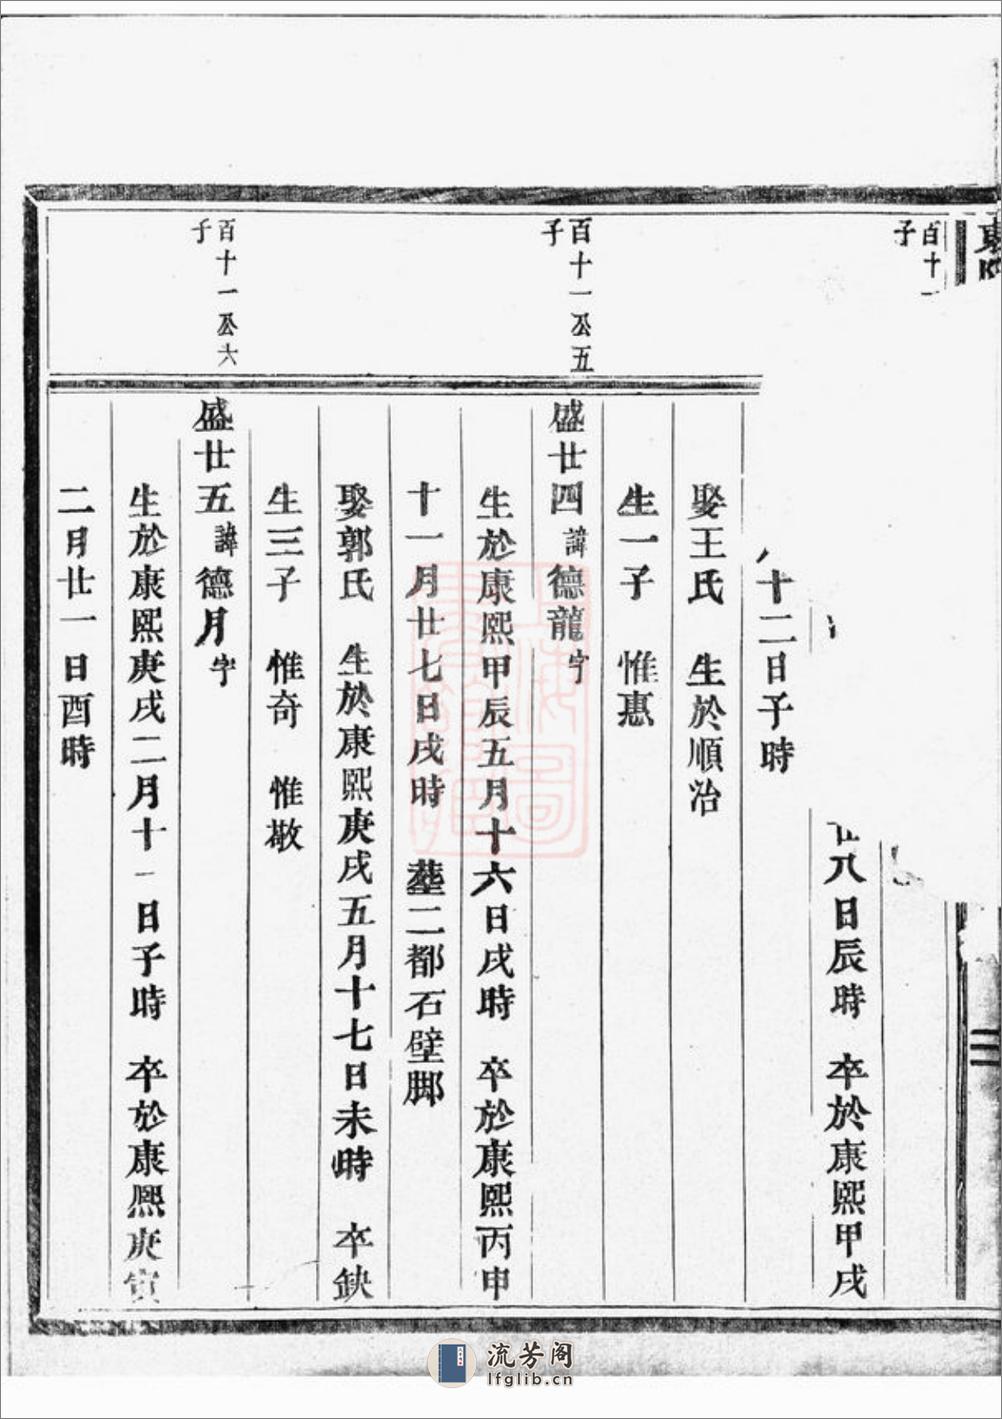 百十一
子
廿八日辰時 卒於康熙甲戌
十二日子時
娶王氏 生於順治
生一子 惟惠
百十一公五
子
盛廿四諱德龍字
生於康熙甲辰五月十六日戌時 卒於康熙丙申
十一月廿七日戌時 塟二都石壁脚
娶郭氏 生於康熙庚戌五月十七日未時 卒缺
生三子 惟奇 惟敬
百十一公六
子
盛廿五諱德月字
生於康熙庚戌二月十一日子時 卒於康熙庚寅
二月廿一日酉時
流芳阁
lfglib.cn